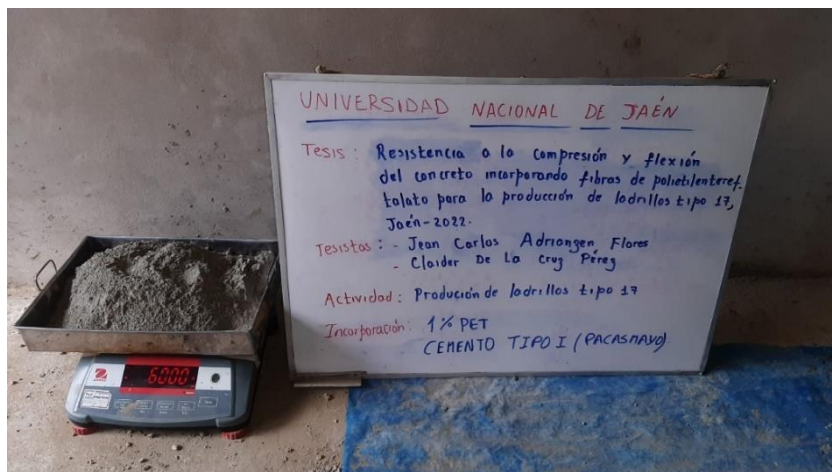 UNIVERSIDAD NACIONAL DE JAÉN
Tesis: Resistencia a la compresión y flexión
del concreto incorporando fibras de polietilenteref-
talato para la producción de ladrillos tipo 17,
Jaén-2022.
Tesistas: - Jean Carlos Adrianzen Flores
- Claider De La Cruz Pérez
Actividad: Produción de ladrillos tipo 17
Incorporación: 1% PET
CEMENTO TIPO I (PACASMAYO)
6000